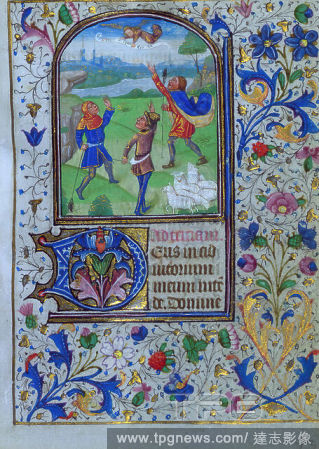 Ad terciam
Eus in ad
iutorium
meum inte
de Domine
TPG
www.tpgnews.com/ 達志影像